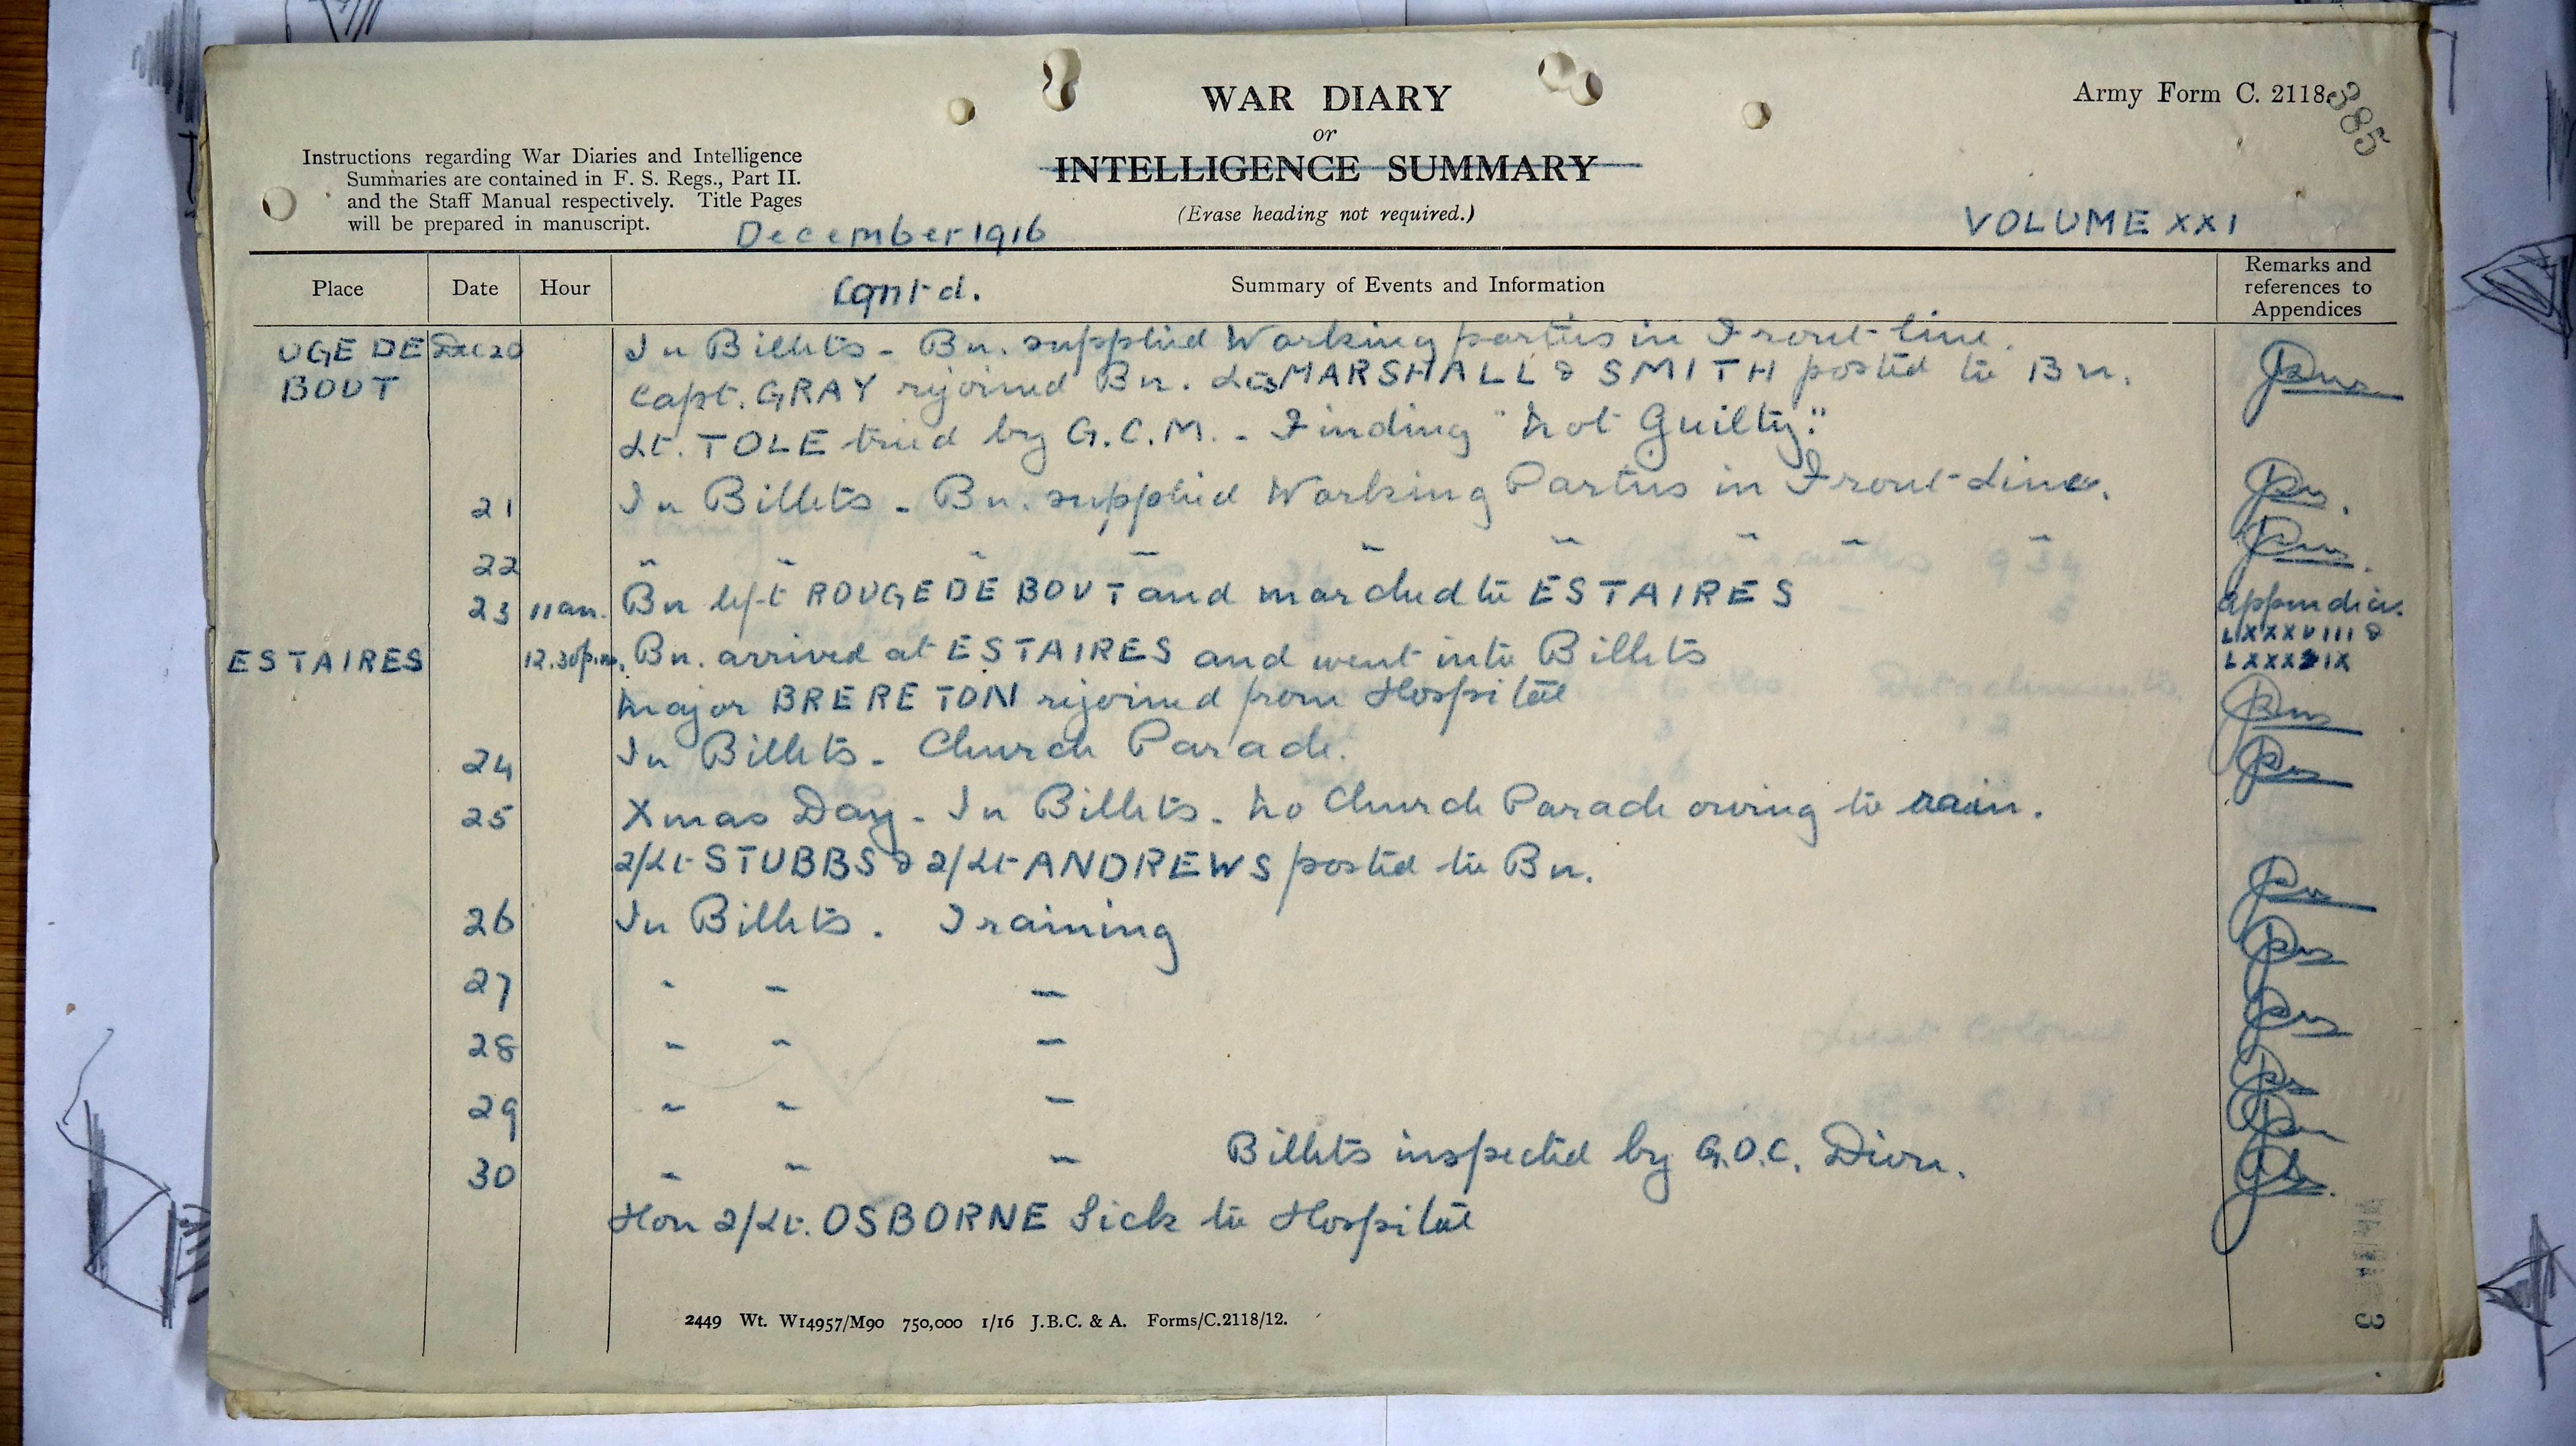 WAR DIARY
or
INTELLIGENCE SUMMARY
(Erase heading not required.)
Army Form C. 2118.
385
Instructions regarding War Diaries and Intelligence
Summaries are contained in F. S. Regs., Part II.
and the Staff Manual respectively. Title Pages
will be prepared in manuscript.
December 1916
VOLUME XXI
Place Date Hour Contd. Summary of Events and Information Remarks and references to Appendices
UGE DE Dec 20 In Billets - Bn. supplied Working parties in Front line.
BOUT Capt. GRAY rejoined Bn. Lts MARSHALL & SMITH posted to Bn.
Lt. TOLE tried by G.C.M. - Finding "Not Guilty."
21 In Billets - Bn. supplied Working Parties in Front Line.
22 " " " " " " " " "
23 11 am. Bn left ROUGE DE BOUT and marched to ESTAIRES Appendices
LXXXVIII &
ESTAIRES 12.30 p.m. Bn. arrived at ESTAIRES and went into Billets LXXXIX
Major BRERETON rejoined from Hospital
24 In Billets - Church Parade.
25 Xmas Day - In Billets - No Church Parade owing to rain.
2/Lt STUBBS & 2/Lt ANDREWS posted to Bn.
26 In Billets. Training
27 " " "
28 " " "
29 " " "
30 " " " Billets inspected by G.O.C. Divn.
Hon 2/Lt. OSBORNE Sick to Hospital
2449 Wt. W14957/M90 750,000 1/16 J.B.C. & A. Forms/C.2118/12.